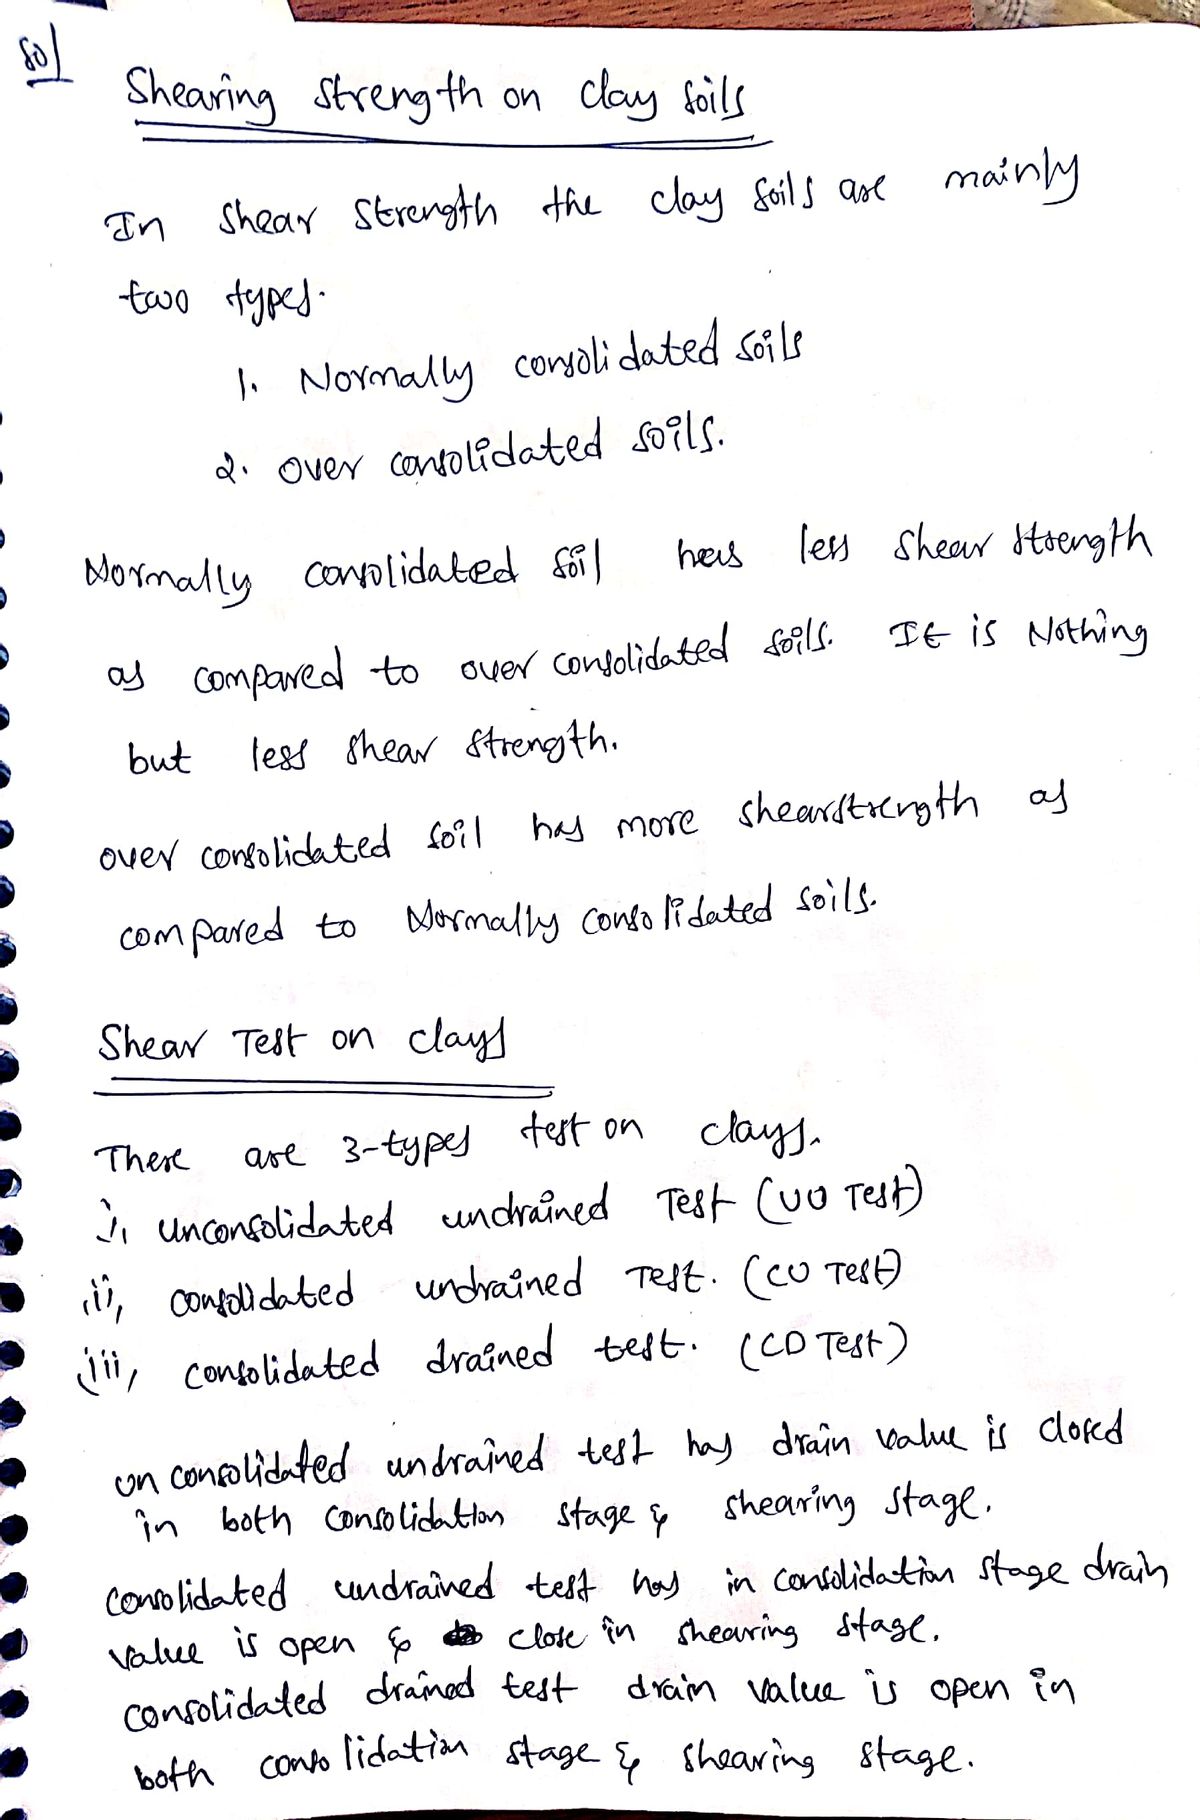 Sol
Shearing strength on clay soils
In shear strength the clay soils are mainly
two types.
1. Normally consolidated soils
2. over consolidated soils.
Normally consolidated soil has less shear strength
as compared to over consolidated soils. It is Nothing
but less shear strength.
over consolidated soil has more shearstrength as
compared to Normally consolidated soils.
Shear Test on clays
There are 3-types test on clays.
i, unconsolidated undrained Test (UU Test)
ii, consolidated undrained Test. (CU Test)
iii, consolidated drained test. (CD Test)
un consolidated undrained test has drain value is closed
in both consolidation stage & shearing stage.
consolidated undrained test has in consolidation stage drain
value is open & close in shearing stage.
consolidated drained test drain value is open in
both consolidation stage & shearing stage.